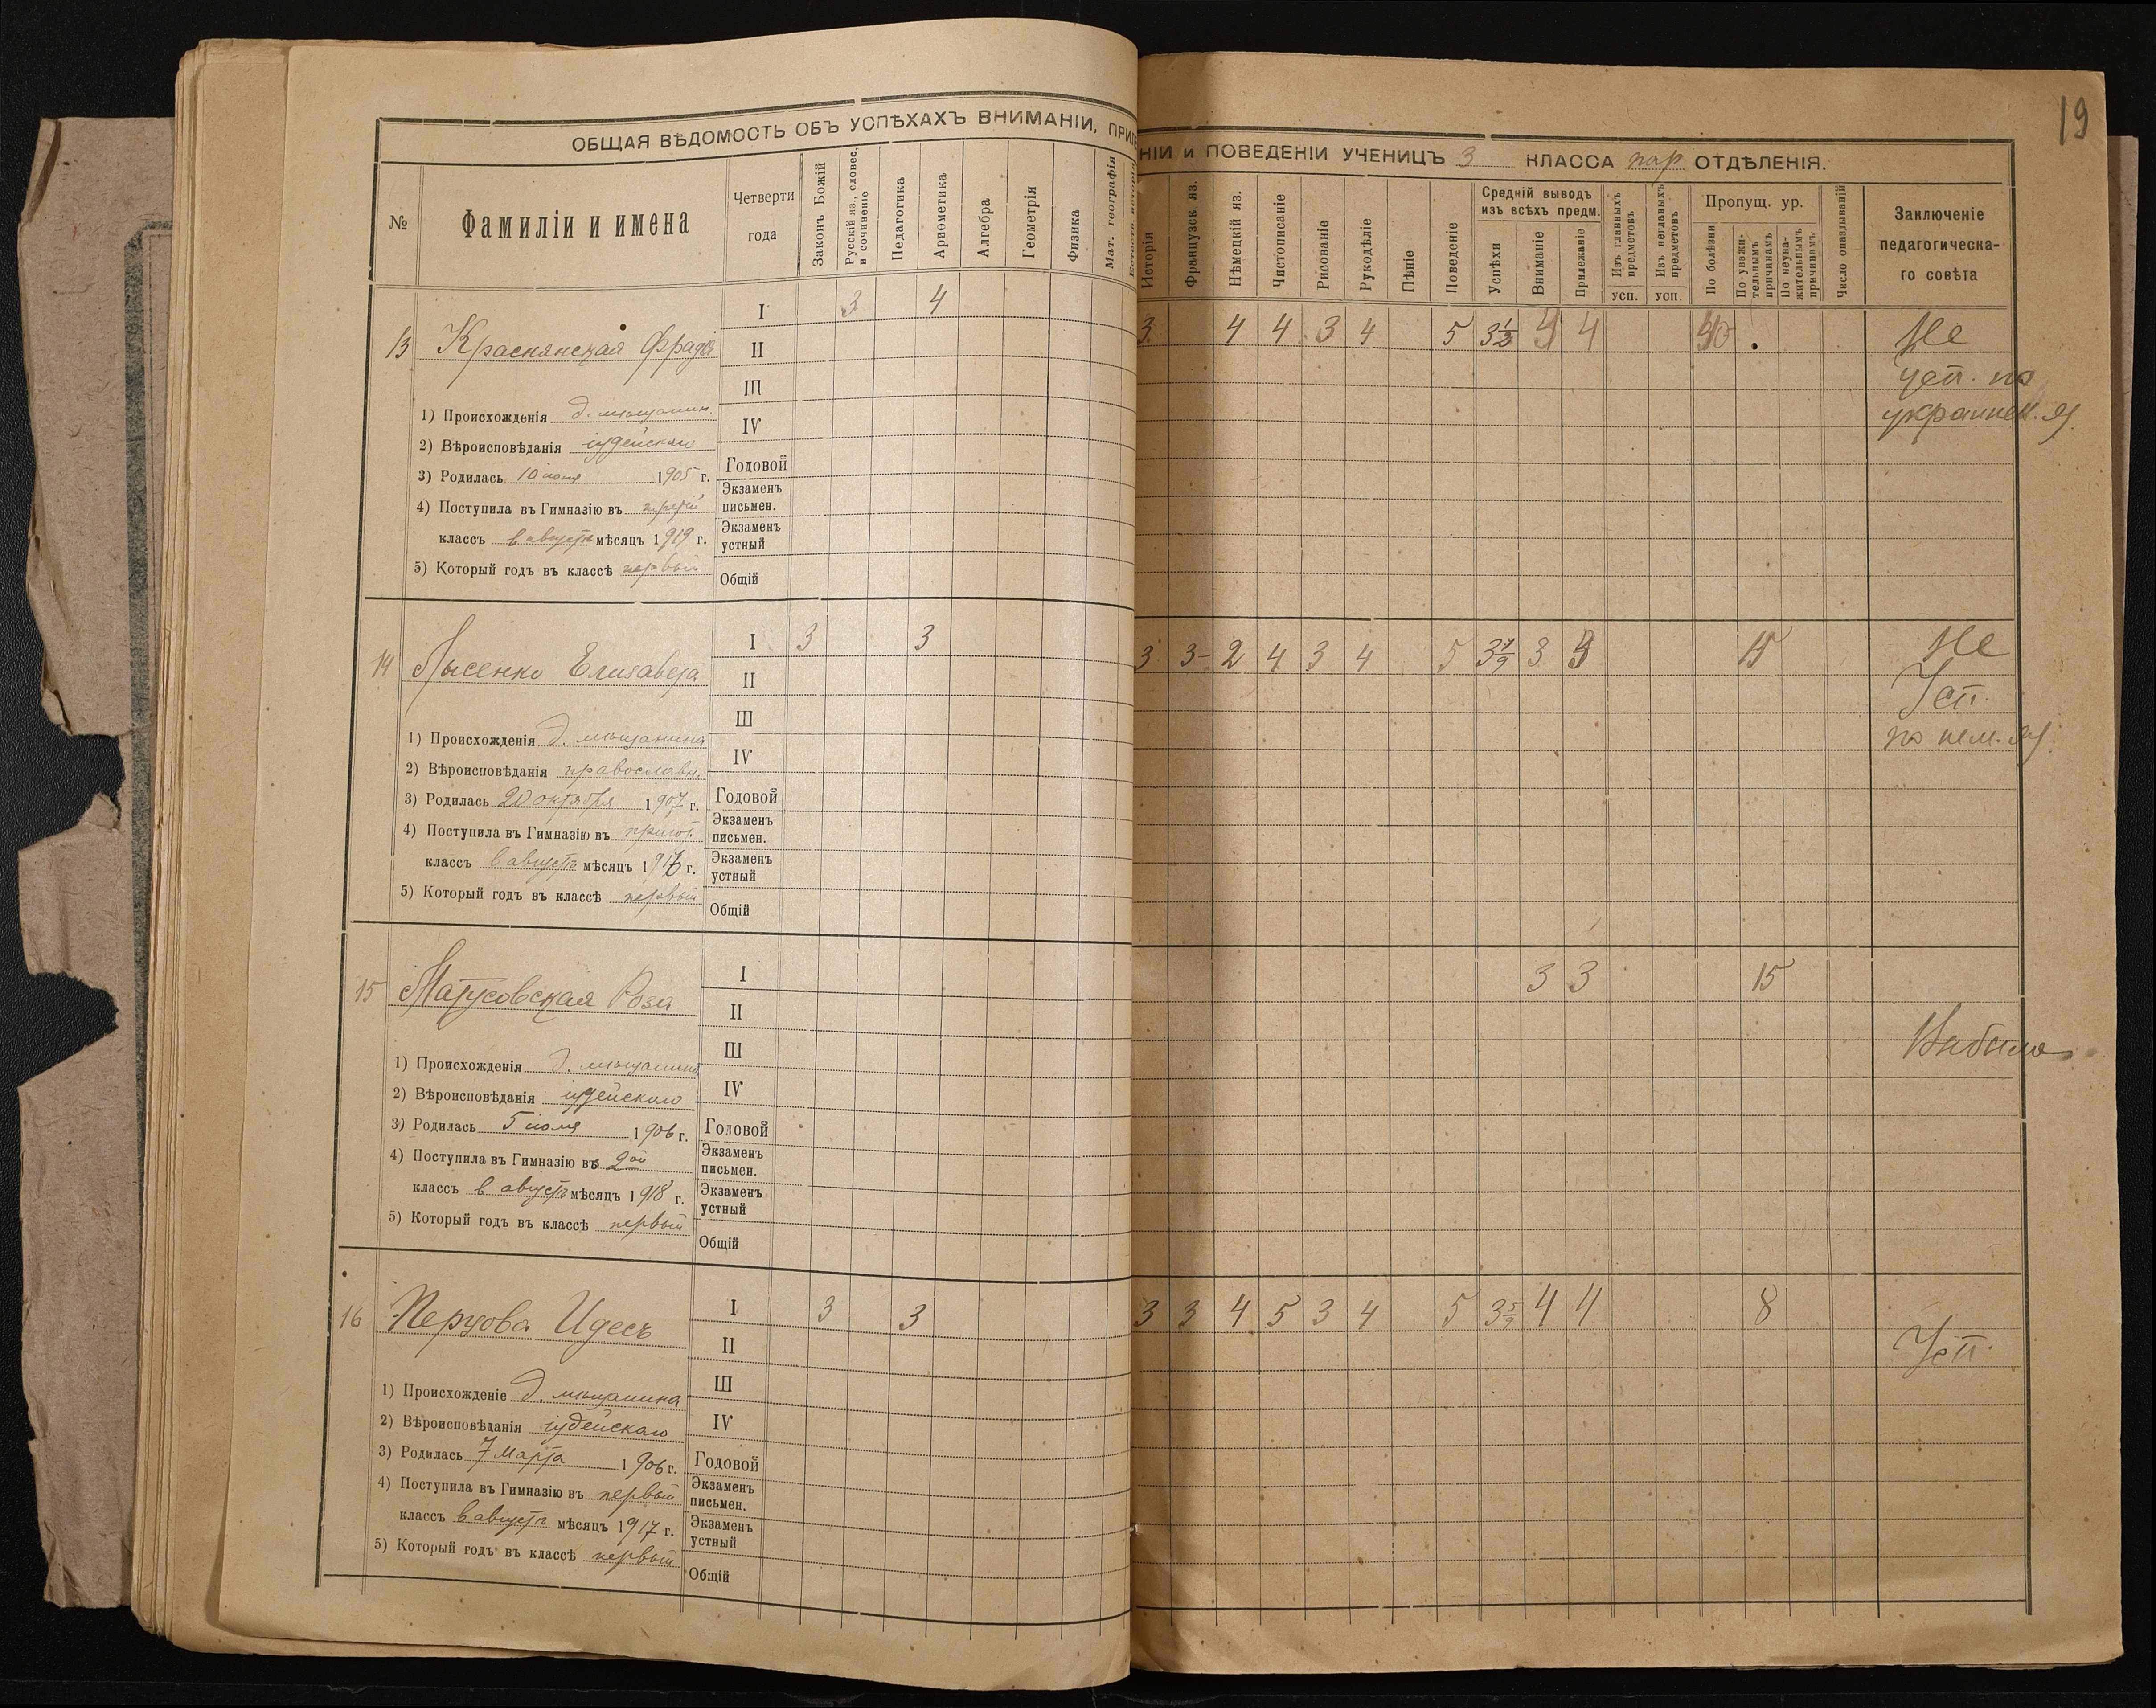 19
ОБЩАЯ ВѢДОМОСТЬ ОБЪ УСПѢХАХЪ ВНИМАНІИ, ПРИЛЕ
НІИ и ПОВЕДЕНІИ УЧЕНИЦЪ 3 КЛАССА пар ОТДѢЛЕНІЯ.
№
Фамиліи и имена
Четверти
года
Законъ Божій
Русскій яз., словес.
и сочиненіе
Педагогика
Ариѳметика
Алгебра
Геометрія
Физика
Мат. географія
Исторія
Француз­ск яз.
Нѣмецкій яз.
Чистописаніе
Рисованіе
Рукодѣліе
Пѣніе
Поведеніе
Средній выводъ
изъ всѣхъ предм.
Успѣхи
Вниманіе
Прилежаніе
Изъ главныхъ
предметовъ
усп.
Изъ неглавныхъ
предметовъ
усп.
Пропущ. ур.
По болѣзни
По уважи-
тельнымъ
причинамъ
По неува-
жительнымъ
причинамъ
Число опаздываній
Заключеніе
педагогическа-
го совѣта
13 Краснянская Фрада
1) Происхожденія д. мѣщанин.
2) Вѣроисповѣданія іудейскаго
3) Родилась 10 1905 г.
4) Поступила въ Гимназію въ третій
классъ в августѣ мѣсяцъ 1919 г.
5) Который годъ въ классѣ первый
I 3 4
II
III
IV
Годовой
Экзаменъ
письмен.
Экзаменъ
устный
Общій
3 4 4 3 4 5 3½ 4 4
Не
усп. по
украинск. яз.
14 Лысенко Елизавета
1) Происхожденія д. мѣщанина
2) Вѣроисповѣданія православн.
3) Родилась 20 октября 1907 г.
4) Поступила въ Гимназію въ пригот.
классъ в августѣ мѣсяцъ 1916 г.
5) Который годъ въ классѣ первый
I 3 3
II
III
IV
Годовой
Экзаменъ
письмен.
Экзаменъ
устный
Общій
3 3- 2 4 3 4 5 3 3 15
Не
Усп.
по нем. яз.
15 Марусовская Роза
1) Происхожденія д. мѣщанина
2) Вѣроисповѣданія іудейскаго
3) Родилась 5 1906 г.
4) Поступила въ Гимназію въ 2ой
классъ в августѣ мѣсяцъ 1918 г.
5) Который годъ въ классѣ первый
I
II
III
IV
Годовой
Экзаменъ
письмен.
Экзаменъ
устный
Общій
3 3 15
Выбыла
16 Перцова Идесь
1) Происхожденіе д. мѣщанина
2) Вѣроисповѣданія іудейскаго
3) Родилась 7 марта 1906 г.
4) Поступила въ Гимназію въ первый
классъ в августѣ мѣсяцъ 1917 г.
5) Который годъ въ классѣ первый
I 3 3
II
III
IV
Годовой
Экзаменъ
письмен.
Экзаменъ
устный
Общій
3 3 4 5 3 4 5 3 5/9 4 4 8
Усп.